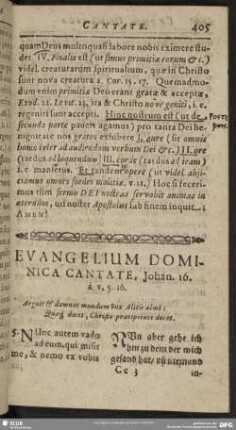 CANTATE. 405
quam Deus multoq; usq; labore nobis eximere studet
IV. Finalis est (ut simus primitiæ eorum &c.)
videl. creaturarum spiritualium, quæ in Christo
sunt nova creatura 2. Cor. 5. 17. Quemadmo-
dum enim primitiæ Deo erant gratæ & acceptæ,
Exod. 22. Levit. 23, ita & Christo novè geniti, i. e.
regeniti sunt accepti. Hinc nostrum est (ut de
secunda parte pauca agamus) pro tanta Dei be-
nignitate nos gratos exhibere I. aure (sit omnis
homo celer ad audiendum verbum Dei &c.) II. ore
(tardus ad loquendum) III. corde (tardus ad iram)
i. e. mansuetus. Et tandem opere (ut videl. abji-
ciamus omnes sordes malitiæ. v. 21.) Hoc si feceri-
mus
AMEN!
EVANGELIUM DOMI-
NICA CANTATE, Johan. 16.
à v. 5-16.
Arguit & damnat mundum vox Alitis almi:
Quæq; docet, Christo præcipiente docet.
5. NUnc autem vado
ad eum, qui misit
me, & nemo ex vobis
NUn aber gehe ich
hin zu dem der mich
gesand hat / uñ niemand
Cc 3 in-